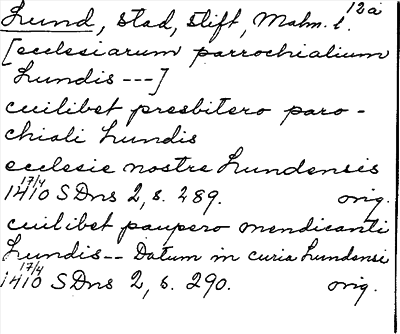 Lund, stad, stift, Malm. l. 12a
[ecclesiarum parrochialium
Lundis ---]
cuilibet presbitero paro-
chiali Lundis
ecclesie nostre Lundensis
17/4 1410 SDns 2, s. 289. orig.
cuilibet paupero mendicanti
Lundis -- Datum in curia Lundensi
17/4 1410 SDns 2, s. 290. orig.